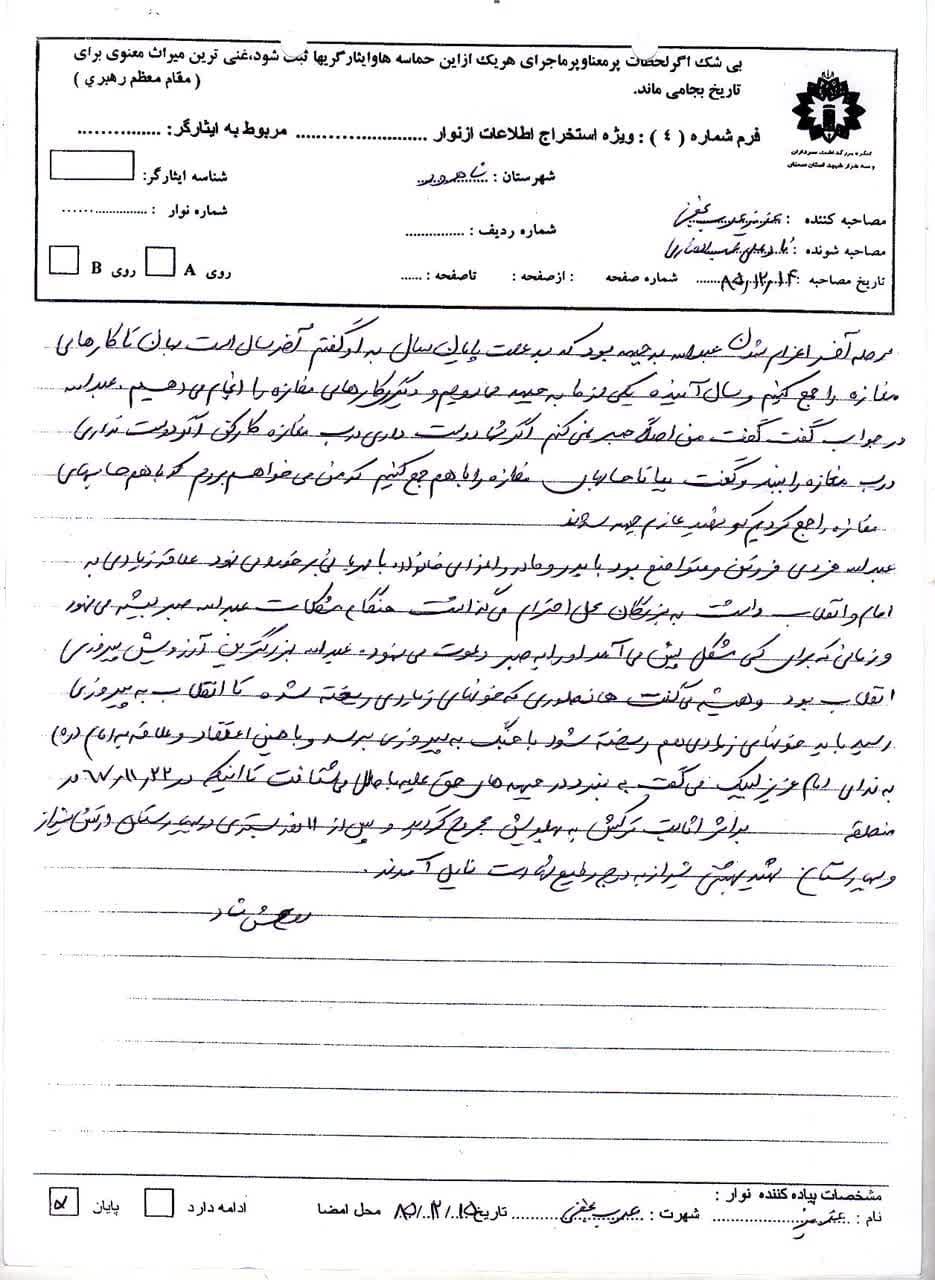 بی شک اگرلحظات پرمعناوپرماجرای هریک ازاین حماسه هاوایثارگریها ثبت شود،غنی ترین میراث معنوی برای
تاریخ بجامی ماند. ( مقام معظم رهبری )
کنگره بزرگداشت سرداران
و سه هزار شهید استان سمنان
فرم شماره ( ٤ ) : ویژه استخراج اطلاعات ازنوار ........................ مربوط به ایثارگر: ...............
شهرستان : شاهرود شناسه ایثارگر:
مصاحبه کننده : شماره نوار : ....................
مصاحبه شونده : شماره ردیف : ...............
تاریخ مصاحبه : ۸۵/۲/۱۴ شماره صفحه : ازصفحه : تاصفحه : ...... روی A روی B
مرحله آخر اعزام شدن عبدالله به جبهه بود که به علت پایان سال به او گفتم آخر سال است بمان تا کارهای
مغازه را جمع کنیم و سال آینده یکی از ما به جبهه می رویم و دیگری کارهای مغازه را انجام می دهیم . عبدالله
در جواب گفت گفت من اصلاً صبر نمی کنم اگر شما دوست داری درب مغازه کار کنی اگر دوست نداری
درب مغازه را ببند و گفت بیا تا حسابهای مغازه را با هم جمع کنیم که من می خواهم بروم که با هم حسابهای
مغازه را جمع کردیم که شهید عازم جبهه شدند
عبدالله فردی فروتن و متواضع بود با پدر و مادر و اعضای خانواده با مهربانی برخورد می نمود علاقه زیادی به
امام و انقلاب داشت به بزرگان محل احترام می گذاشت هنگام مشکلات عبدالله صبر پیشه می نمود
و زمانی که برای کسی مشکل پیش می آمد او را به صبر دعوت می نمود . عبدالله بزرگترین آرزویش پیروزی
انقلاب بود و همیشه می گفت همانطوری که خونهای زیادی ریخته شده تا انقلاب به پیروزی
رسید باید خونهای زیادی هم ریخته شود تا جنگ به پیروزی برسد و با چنین اعتقاد و علاقه به امام (ره)
به ندای امام عزیز لبیک می گفت و در جبهه های حق علیه باطل می شتافت تا اینکه در ۶۷/۱۱/۲۲ در
منطقه براثر اثابت ترکش به پهلویش مجروح گردید و پس از ۱۱ روز بستری در بیمارستان ارتش شیراز
و بیمارستان شهید بهشتی شیراز به درجه رفیع شهادت نایل آمدند .
روحش شاد
مشخصات پیاده کننده نوار :
نام : شهرت : تاریخ ۸۵/۲/۱۵ محل امضا ادامه دارد پایان